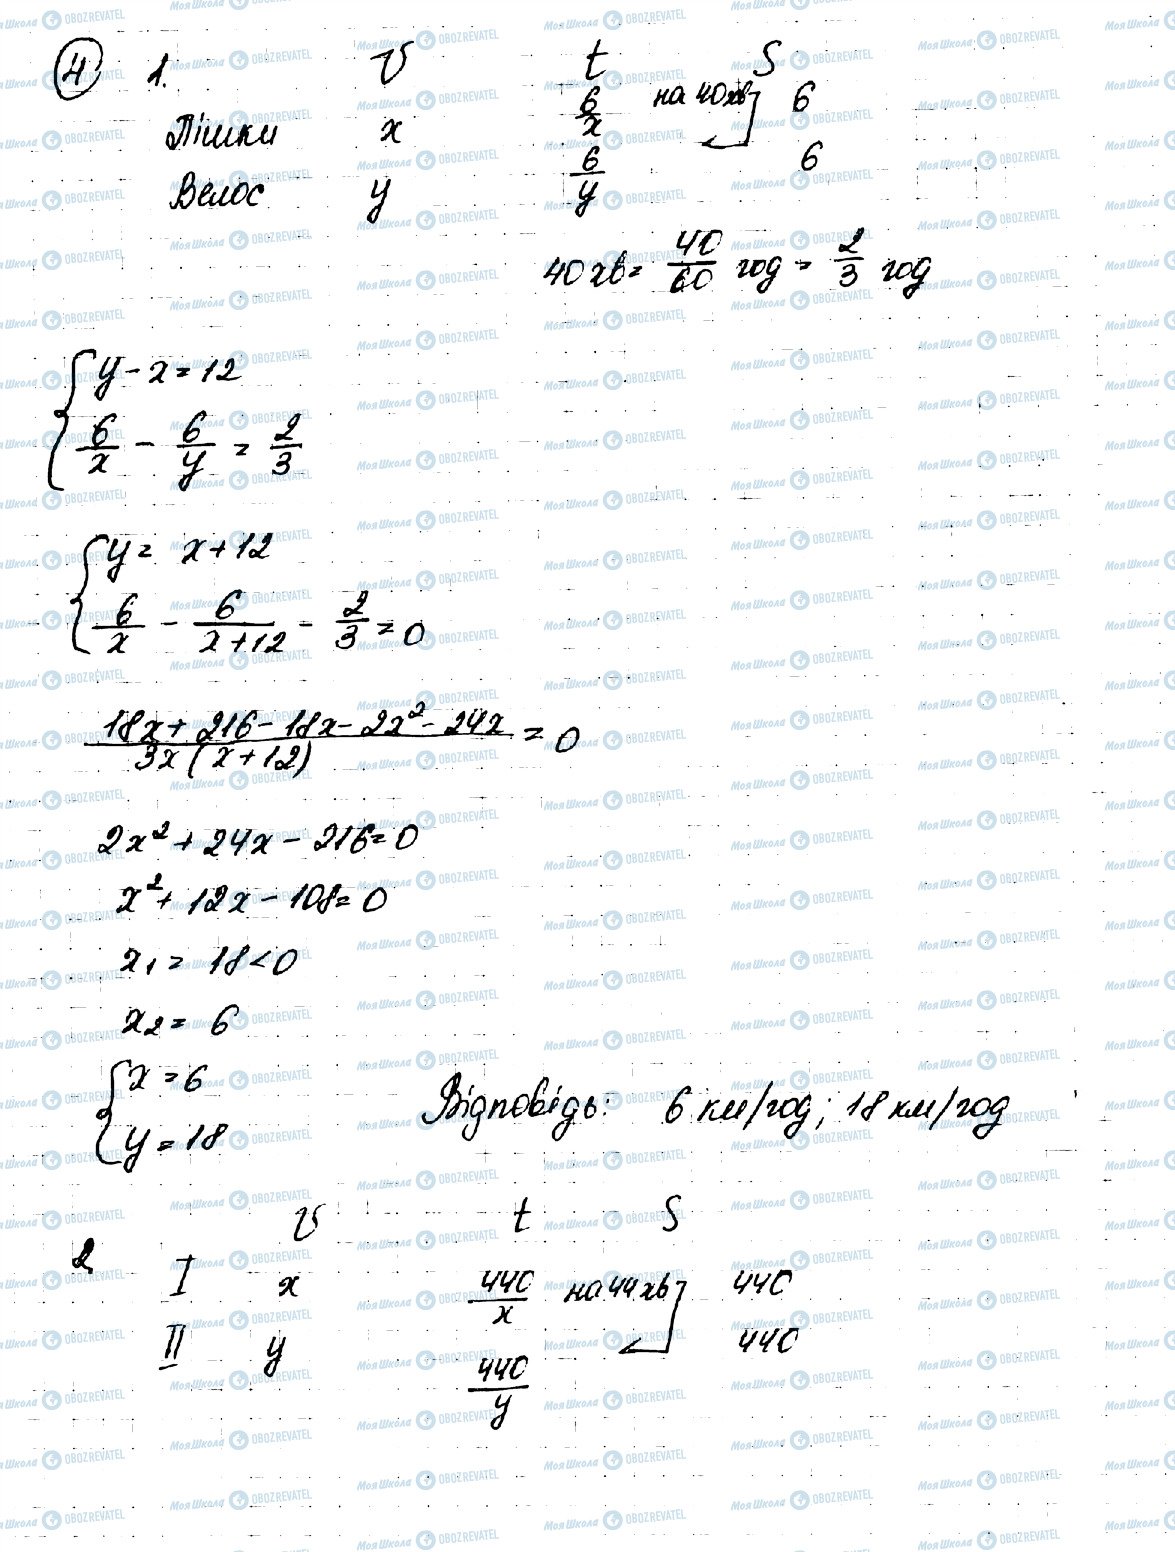 4 1. V t S
Пішки x 6/x на 40хв 6
Велос y 6/y 6
40хв = 40/60 год = 2/3 год
{ y - x = 12
6/x - 6/y = 2/3
{ y = x + 12
6/x - 6/(x+12) - 2/3 = 0
(18x + 216 - 18x - 2x² - 24x)/(3x(x+12)) = 0
2x² + 24x - 216 = 0
x² + 12x - 108 = 0
x₁ = 18 < 0
x₂ = 6
{ x = 6
y = 18
Відповідь: 6 км/год; 18 км/год
2 V t S
I x 440/x на 44хв 440
II y 440/y 440
МояШкола OBOZREVATEL